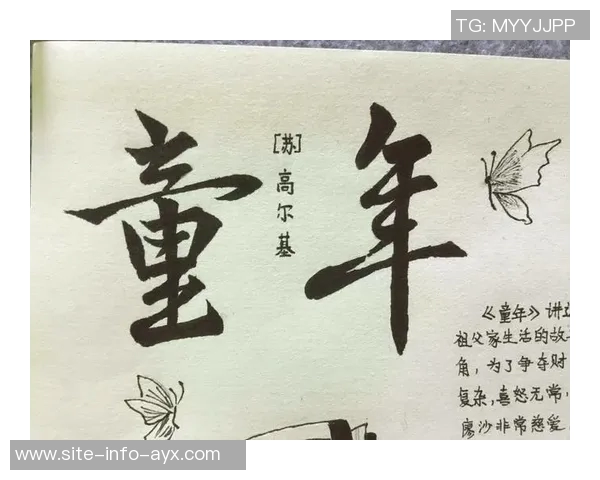 TG: MYYJJPP
童年
[苏]高尔基
《童年》讲
祖父家生活的故
角，为了争夺财
复杂，喜怒无常，
廖沙非常慈爱
www.site-info-ayx.com